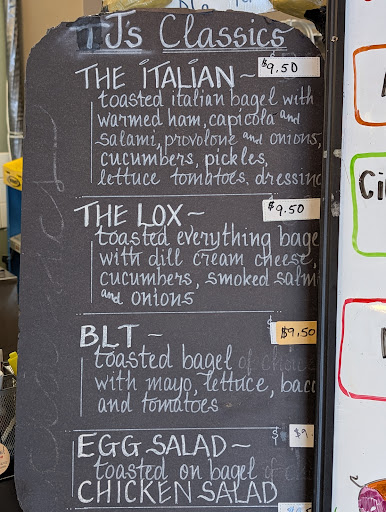 TJ's Classics
THE ITALIAN ~ $9.50
toasted italian bagel with
warmed ham, capicola and
salami, provolone and onions,
cucumbers, pickles,
lettuce tomatoes. dressing
THE LOX ~ $9.50
toasted everything bage
with dill cream cheese,
cucumbers, smoked salm
and onions
BLT ~ $9.50
toasted bagel of choice
with mayo, lettuce, baco
and tomatoes
EGG SALAD ~ $9.
toasted on bagel of
CHICKEN SALAD
Ci